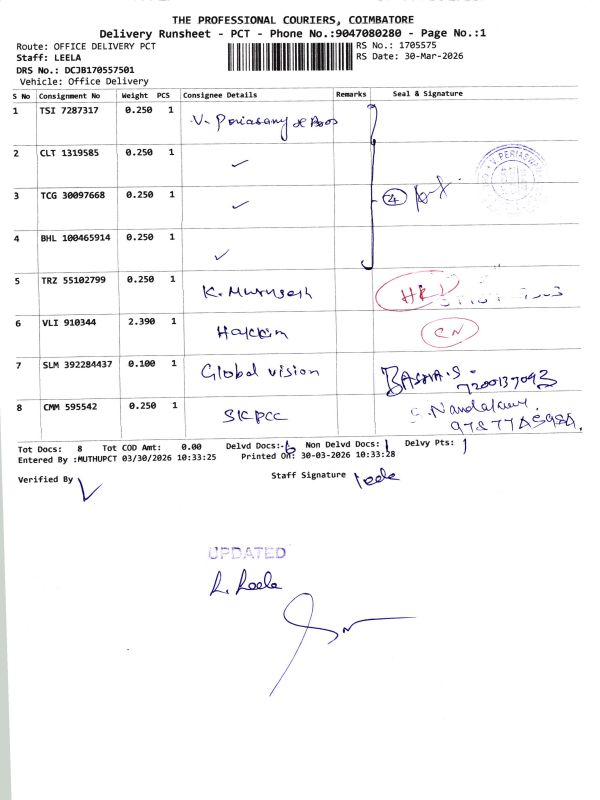 THE PROFESSIONAL COURIERS, COIMBATORE
Delivery Runsheet - PCT - Phone No.:9047080280 - Page No.:1
Route: OFFICE DELIVERY PCT
RS No.: 1705575
Staff: LEELA
RS Date: 30-Mar-2026
DRS No.: DCJB170557501
Vehicle: Office Delivery
S No Consignment No Weight PCS Consignee Details Remarks Seal & Signature
1 TSI 7287317 0.250 1 V.
2 CLT 1319585 0.250 1 ✓
3 TCG 30097668 0.250 1 ✓ 4
4 BHL 100465914 0.250 1 ✓
5 TRZ 55102799 0.250 1 K. Murugesh
6 VLI 910344 2.390 1 Hakkim CN
7 SLM 392284437 0.100 1 Global vision BASHA.S. 7200137093
8 CMM 595542 0.250 1 SKPCC
Tot Docs: 8 Tot COD Amt: 0.00 Delvd Docs: 6 Non Delvd Docs: 1 Delvy Pts: 1
Entered By :MUTHUPCT 03/30/2026 10:33:25 Printed On: 30-03-2026 10:33:28
Verified By
Staff Signature leela
UPDATED
R. Leela